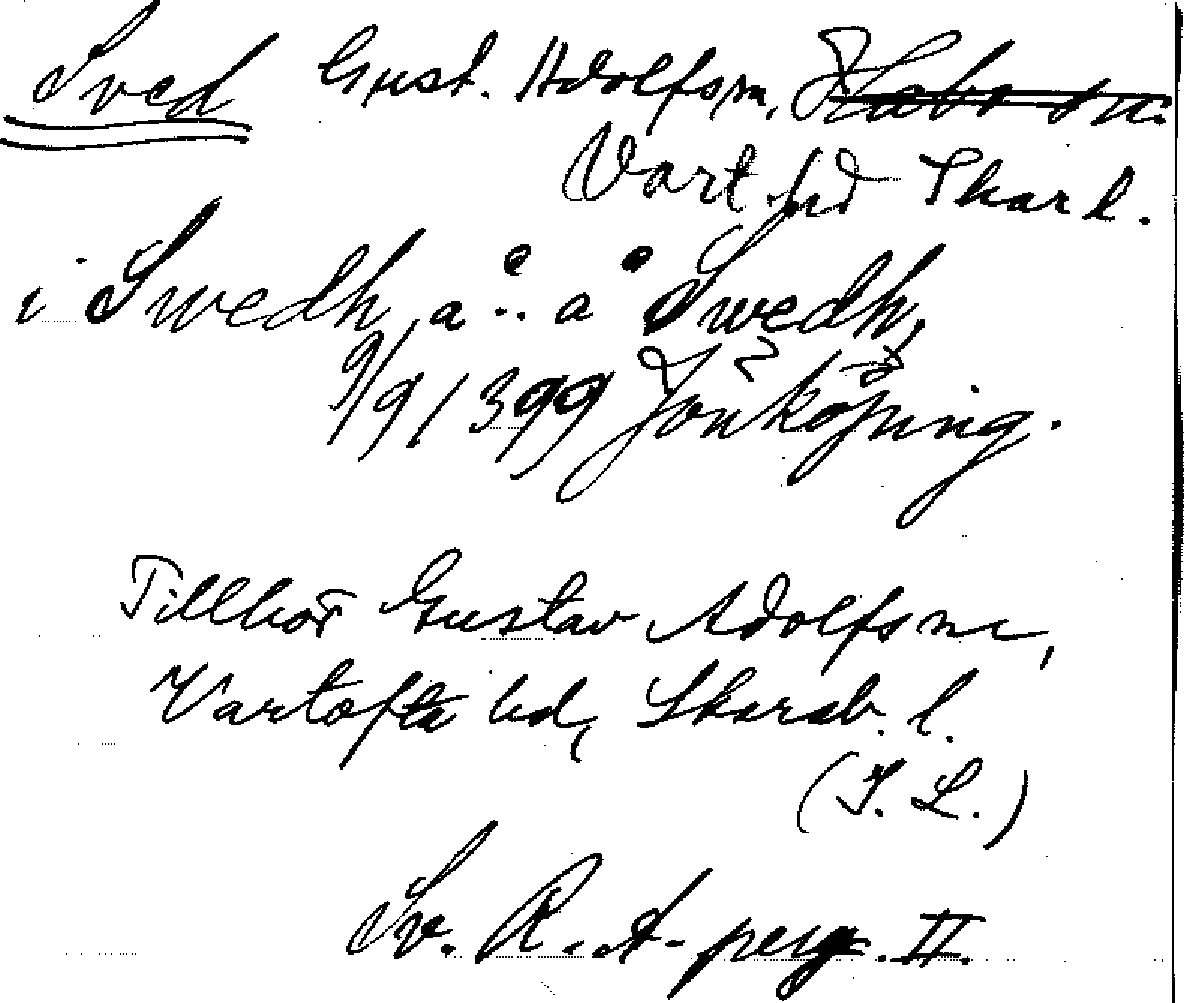 Sved Gust. Adolfsm, Habo sn.
Vart. hd Skar l.
i Swedh, a.. a Swedh,
9/9 1399 Jönköping.
Tillhör Gustav Adolfsm,
Vartofta hd, Skarab. l.
(I. L.)
Sv. R. A. perg. II.